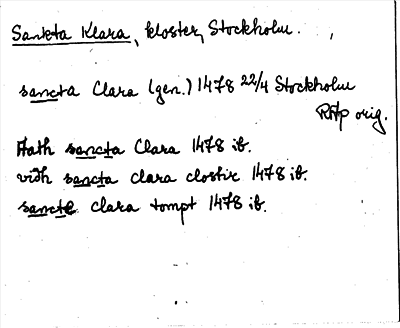 Sankta Klara, kloster, Stockholm.
sancta Clara (gen.) 1478 22/4 Stockholm
RAp orig.
Hath sancta Clara 1478 ib.
vidh sancta clara clostir 1478 ib.
sancte clara tompt 1478 ib.